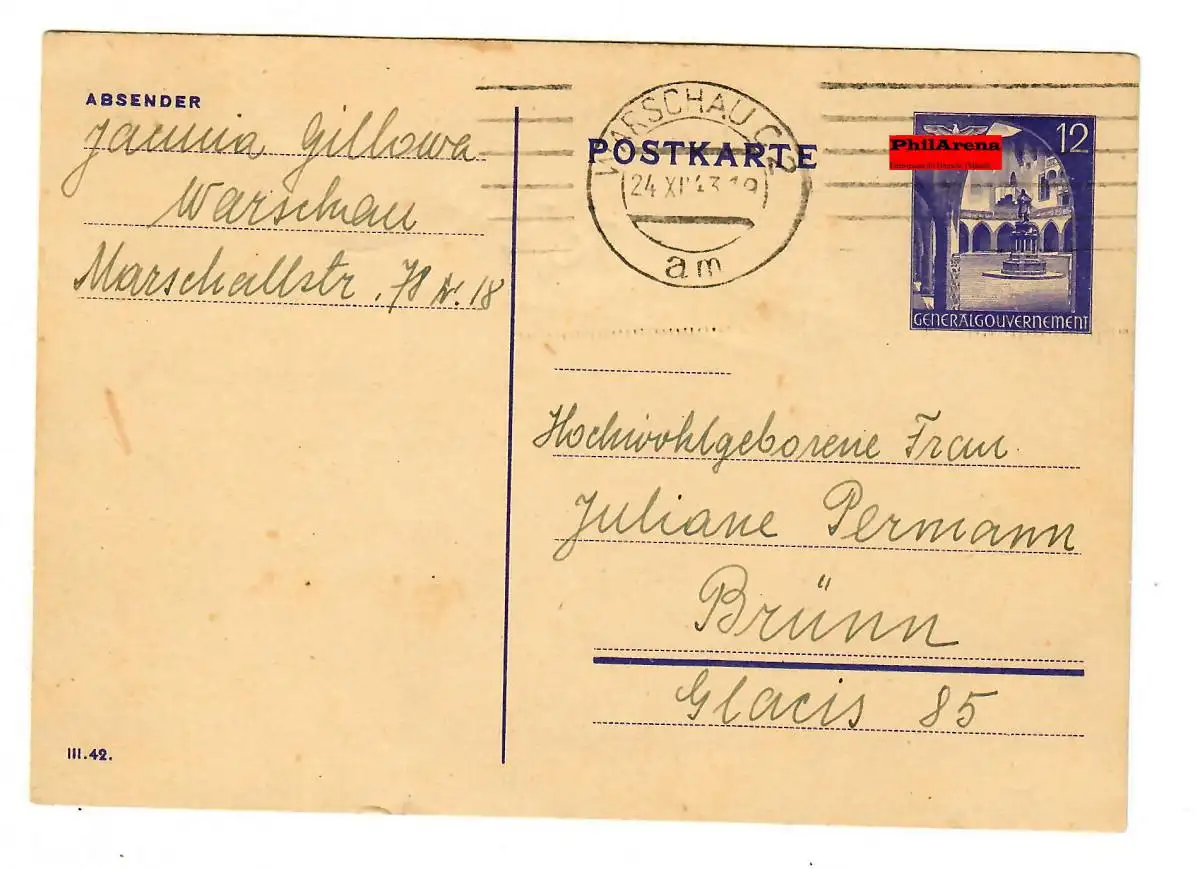 ABSENDER
Janina Gillowa
Warschau
Marschallstr. 78 W. 18
III.42.
POSTKARTE
WARSCHAU C2
24 XI 43 19
am
PhilArena
12
GENERALGOUVERNEMENT
Hochwohlgeborene Frau
Juliane Permann
Brünn
Glacis 85